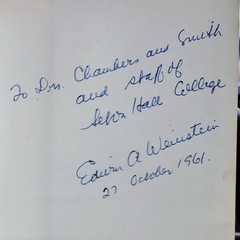 To Drs. Chambers and Smith
and staff of
Seton Hall College
Edwin A Weinstein
27 October 1961.